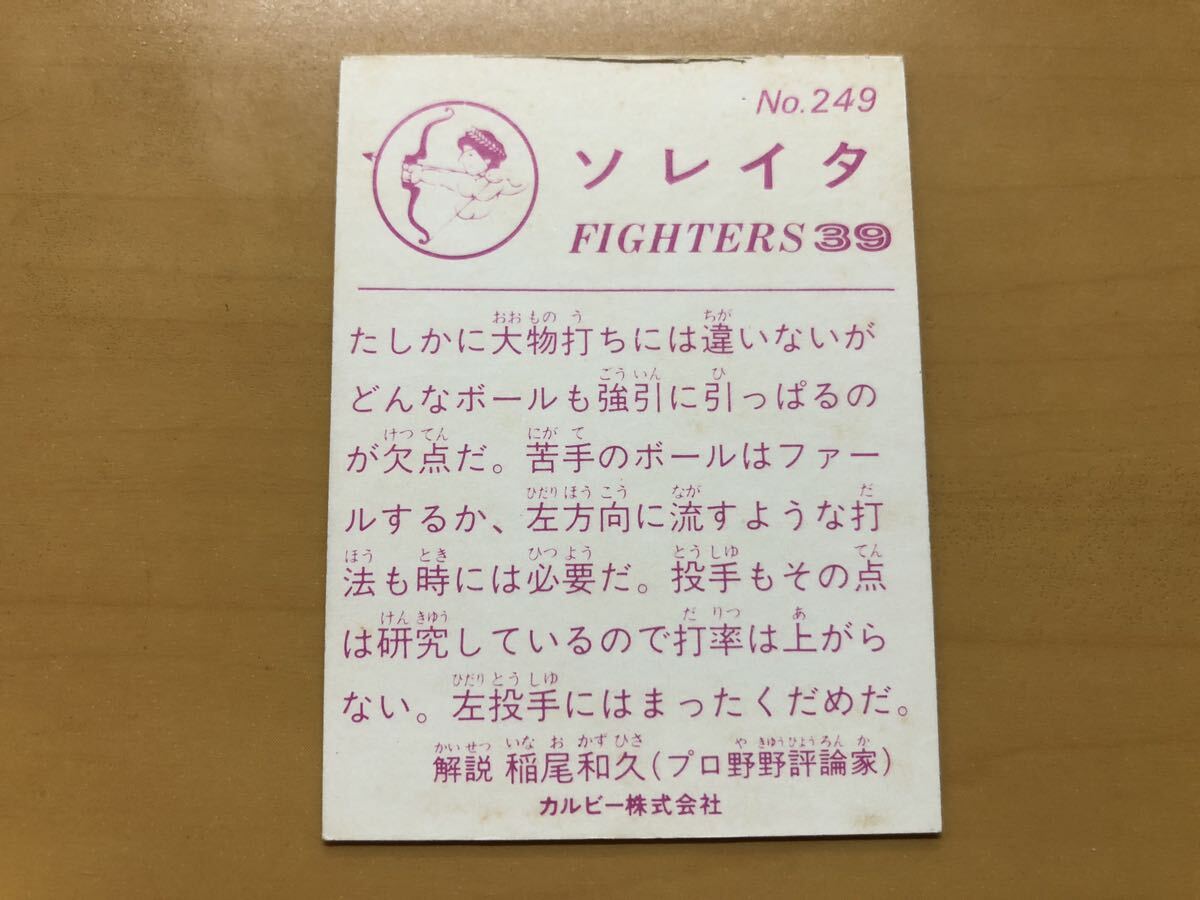 No.249
ソレイタ
FIGHTERS 39
たしかに大物打ちには違いないが
どんなボールも強引に引っぱるの
が欠点だ。苦手のボールはファー
ルするか、左方向に流すような打
法も時には必要だ。投手もその点
は研究しているので打率は上がら
ない。左投手にはまったくだめだ。
解説 稲尾和久(プロ野野評論家)
カルビー株式会社